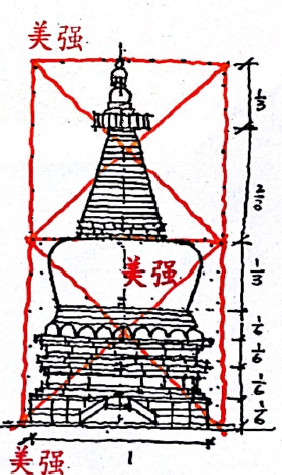 美强
1/3
2/3
美强
1/3
1/6
1/6
1/6
1/6
美强
1